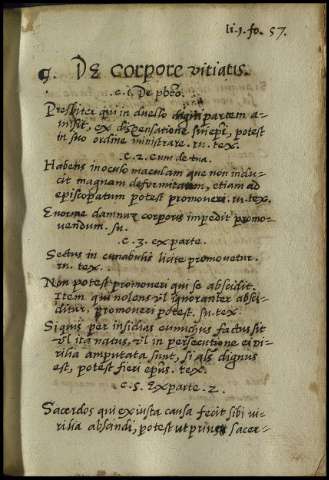 li.j.fo. 57.
9. De corpore vitiatis.
c. 1. De pbro.
Presbiter qui in duello digiti partem a-
misit, ex dispensatione suscepti, potest
in suo ordine ministrare. in. tex.
c. 2. cum de tua.
Habens in oculo maculam que non indu-
cit magnam deformitatem, etiam ad
episcopatum potest promoveri. in. tex.
Enorme damnum corporis impedit promo-
vendum. su.
c. 3. ex parte.
Sectus in cunabulis licite promovetur.
in. tex.
Non potest promoveri qui se abscidit.
Item qui nolens vl ignoranter absci-
ditur, promoveri potest. su. tex.
Siquis per insidias eunuchus factus sit
vl ita natus, vl in persecutione ei vi-
rilia amputata sunt, si als dignus
est, potest fieri epus. tex.
c. 5. Ex parte. 2.
Sacerdos qui ex iusta causa fecit sibi vi-
rilia abscindi, potest ut prius sacer-